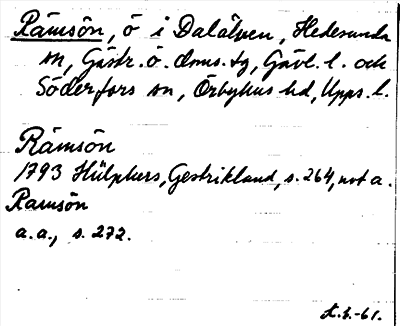 Rämsön, ö i Dalälven, Hedesunda
sn, Gästr. ö. dms. tg, Gävl. l. och
Söderfors sn, Örbyhus hd, Upps. l.
Rämsön
1793 Hülphers, Gestrikland, s. 264, not a.
Ramsön
a. a., s. 272.